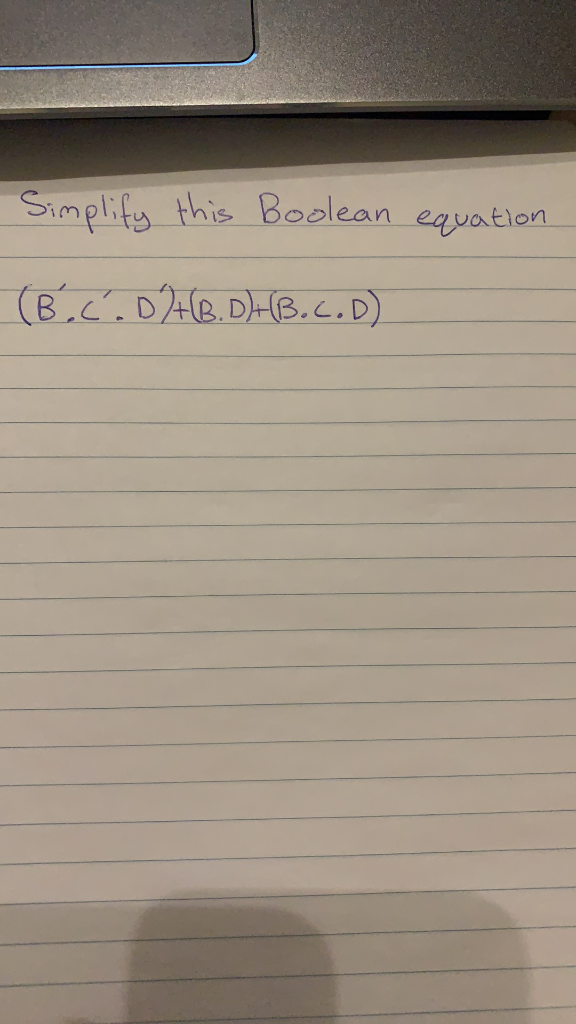 Simplify this Boolean equation
(B´.C´.D´)+(B.D)+(B.C.D)